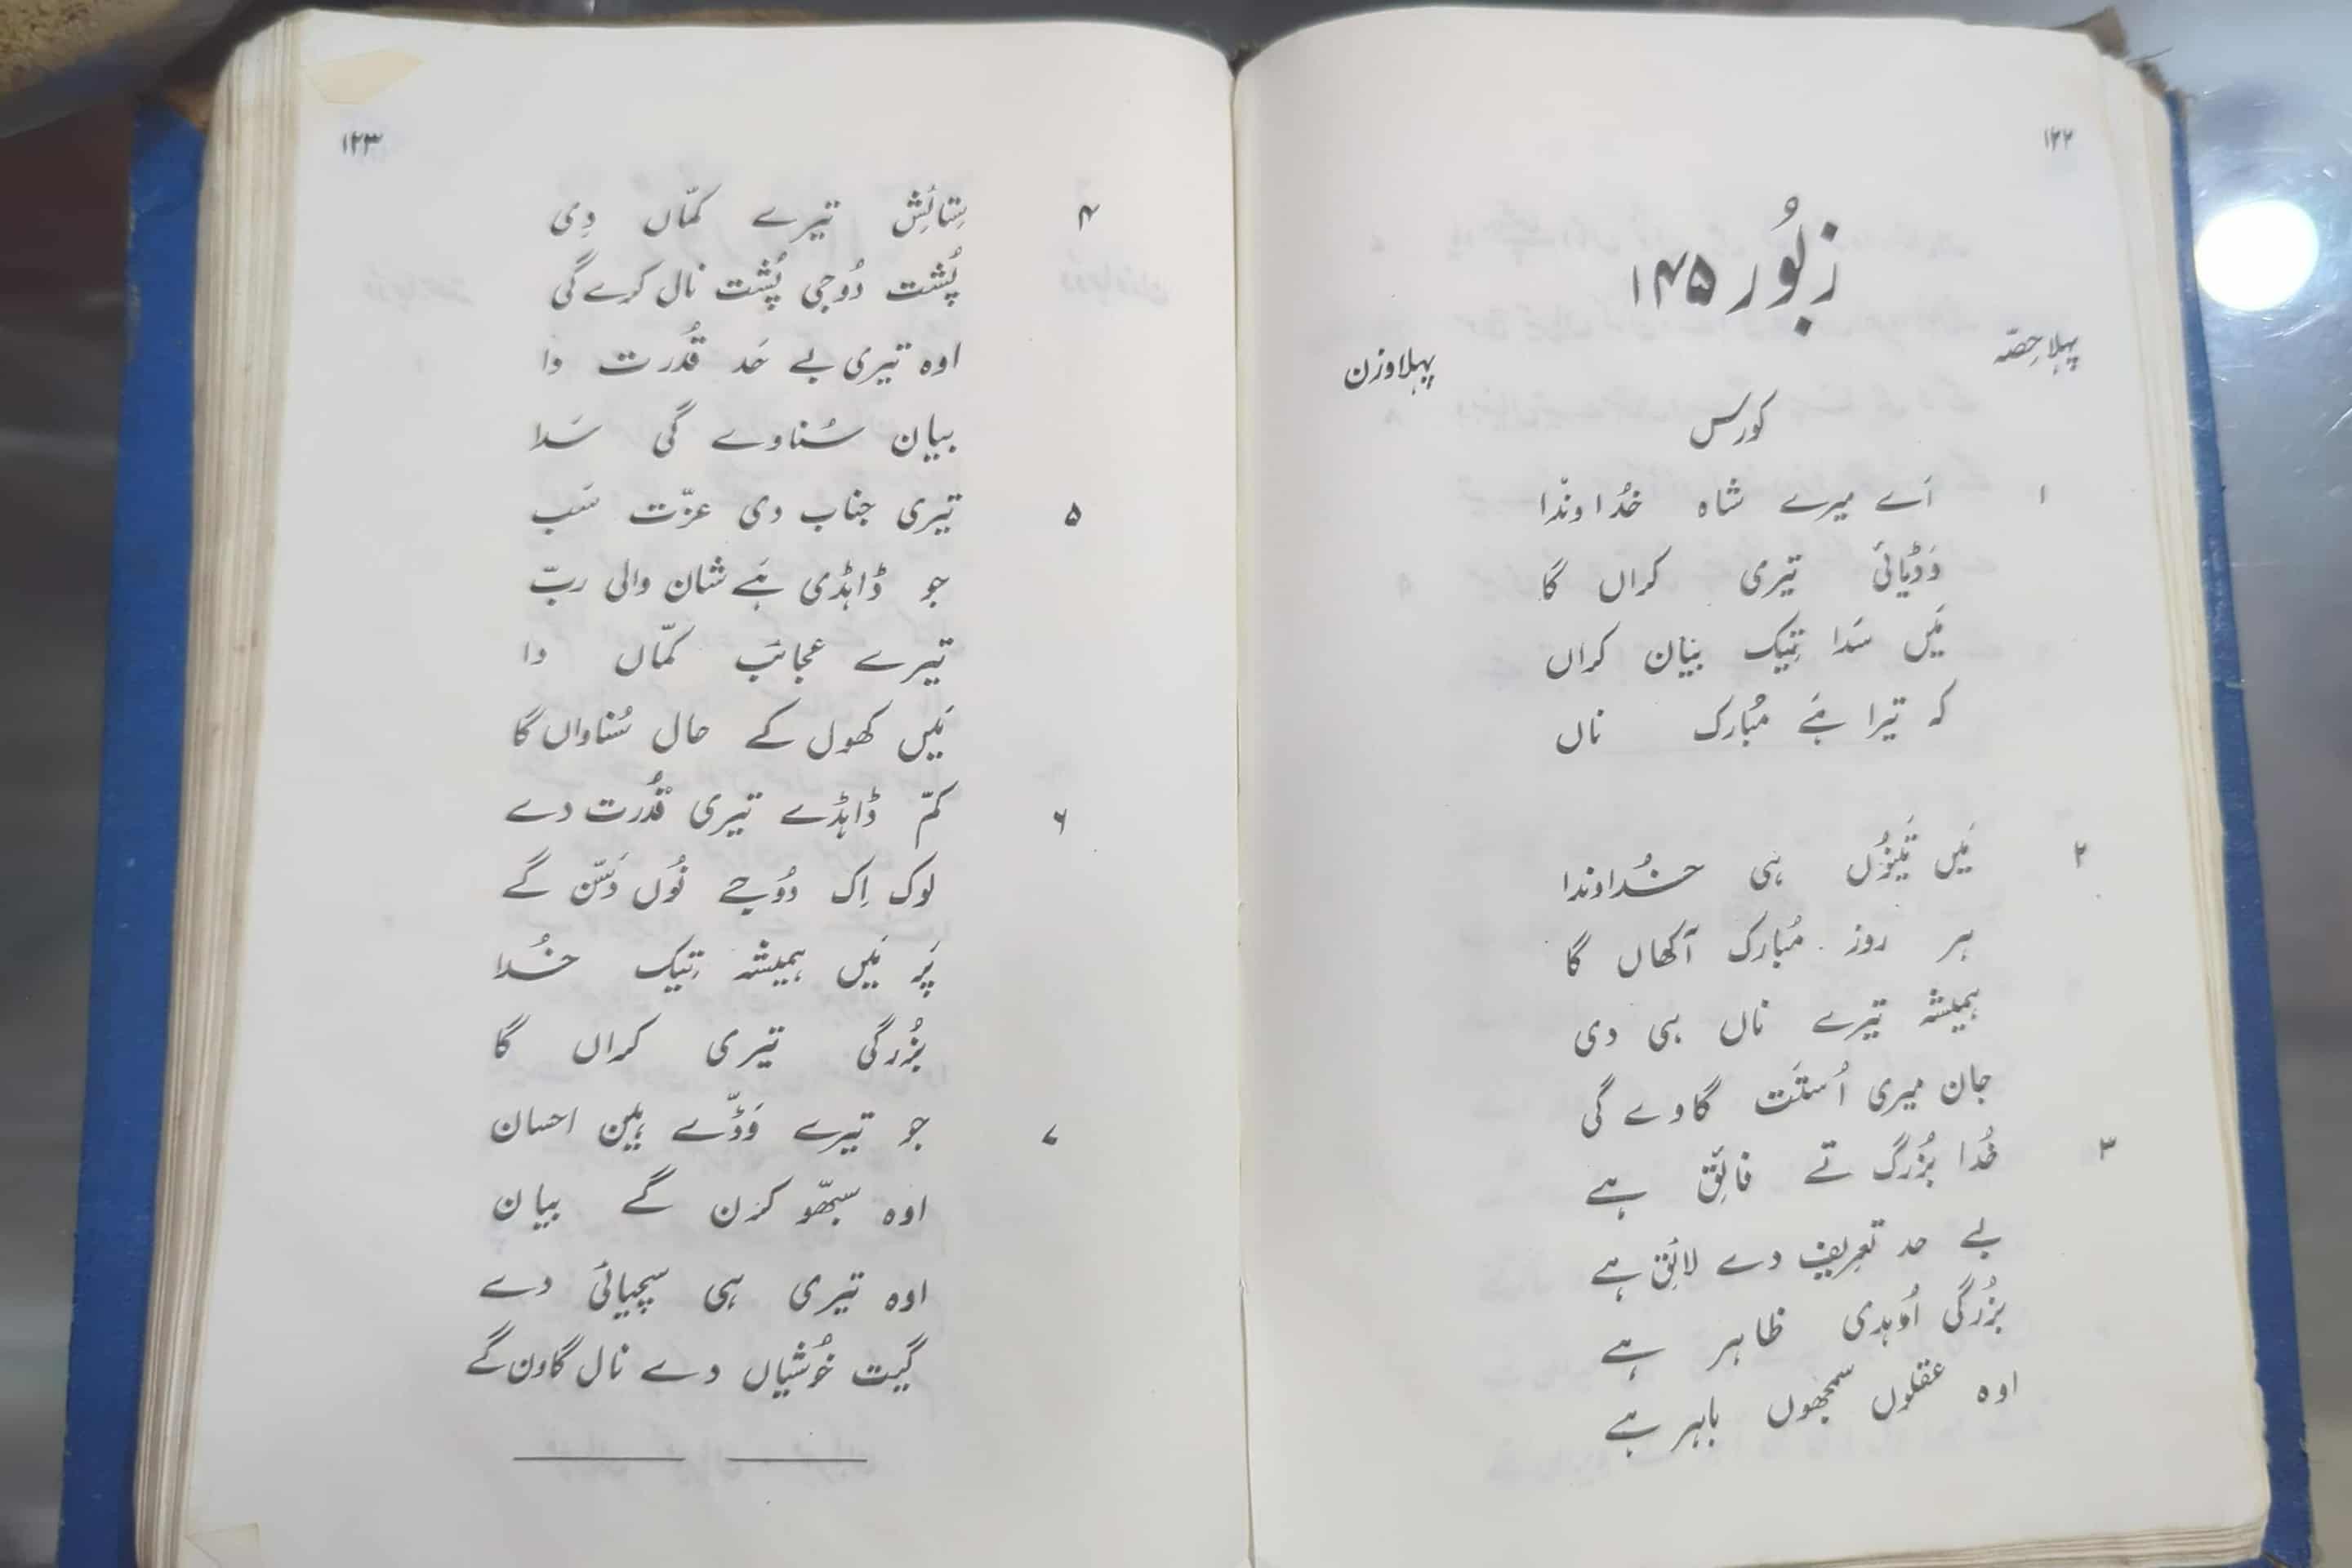 ۱۲۲
زبُور ۱۴۵
پہلا حِصّہ
پہلا وزن
کورس
۱
اَے میرے شاہ خُداوندا
وَڈیائی تیری کراں گا
مَیں سَدا تِیک بیان کراں
کہ تیرا ہَے مُبارک ناں
۲
مَیں تَینُوں ہی خُداوندا
ہر روز مُبارک آکھاں گا
ہمیشہ تیرے ناں ہی دی
جان میری اُستَت گاوے گی
۳
خُدا بزُرگ تے فائِق ہے
بے حد تعرِیف دے لائِق ہے
بزُرگی اُوہدی ظاہر ہے
اوہ عقلوں سمجھوں باہر ہے
۱۲۳
۴
سِتائِش تیرے کمّاں دِی
پُشت دُوجی پُشت نال کرے گی
اوہ تیری بے حَد قُدرت دا
بیان سُناوے گی سَدا
۵
تیری جناب دی عزّت سَب
جو ڈاہڈی ہَے شان والی ربّ
تیرے عجائب کمّاں دا
مَیں کھول کے حال سُناواں گا
۶
کمّ ڈاہڈے تیری قُدرت دے
لوک اِک دُوجے نُوں دَسّن گے
پَر مَیں ہمیشہ تِیک خُدا
بزُرگی تیری کراں گا
۷
جو تیرے وَڈّے ہین احسان
اوہ سبھّو کرن گے بیان
اوہ تیری ہی سچیائی دے
گیت خُوشیاں دے نال گاون گے